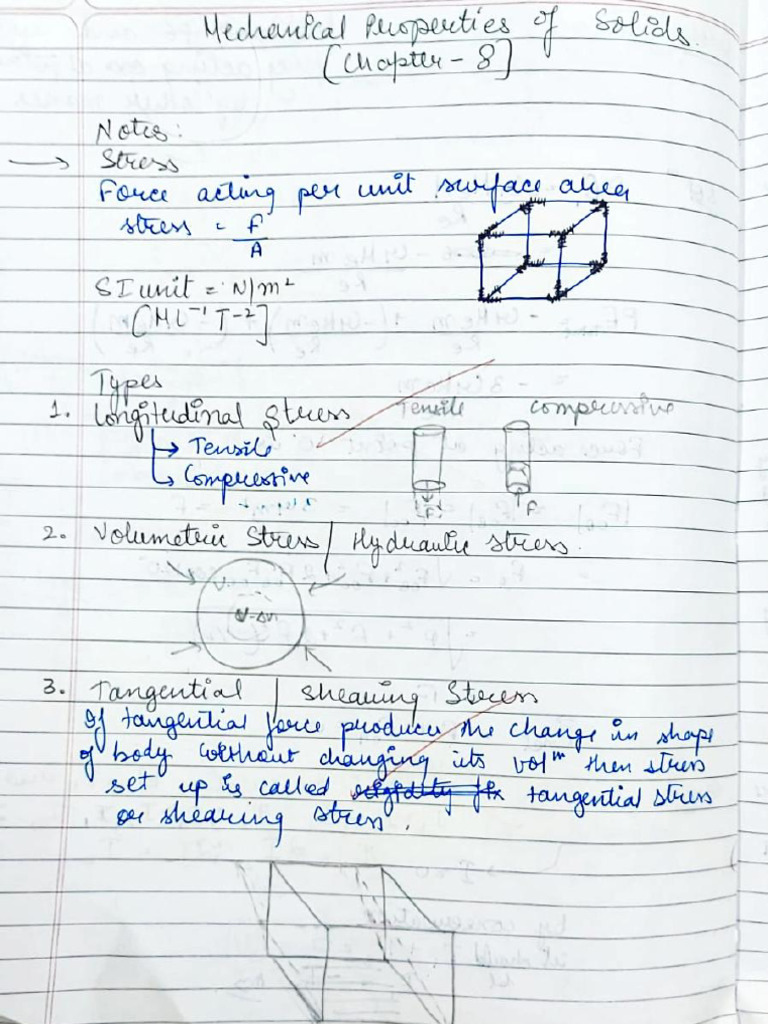 Mechanical Properties of Solids.
[Chapter - 8]
Notes:
→ Stress
Force acting per unit surface area
stress = F/A
SI unit = N/m²
[ML⁻¹ T⁻²]
Types
1. Longitudinal Stress
Tensile compressive
↳ Tensile
↳ Compressive
F F
2. Volumetric Stress / Hydraulic stress.
V-ΔV
3. Tangential / Shearing Stress
If tangential force produces the change in shape
of body without changing its volᵐ then stress
set up is called tangential stress
or shearing stress.